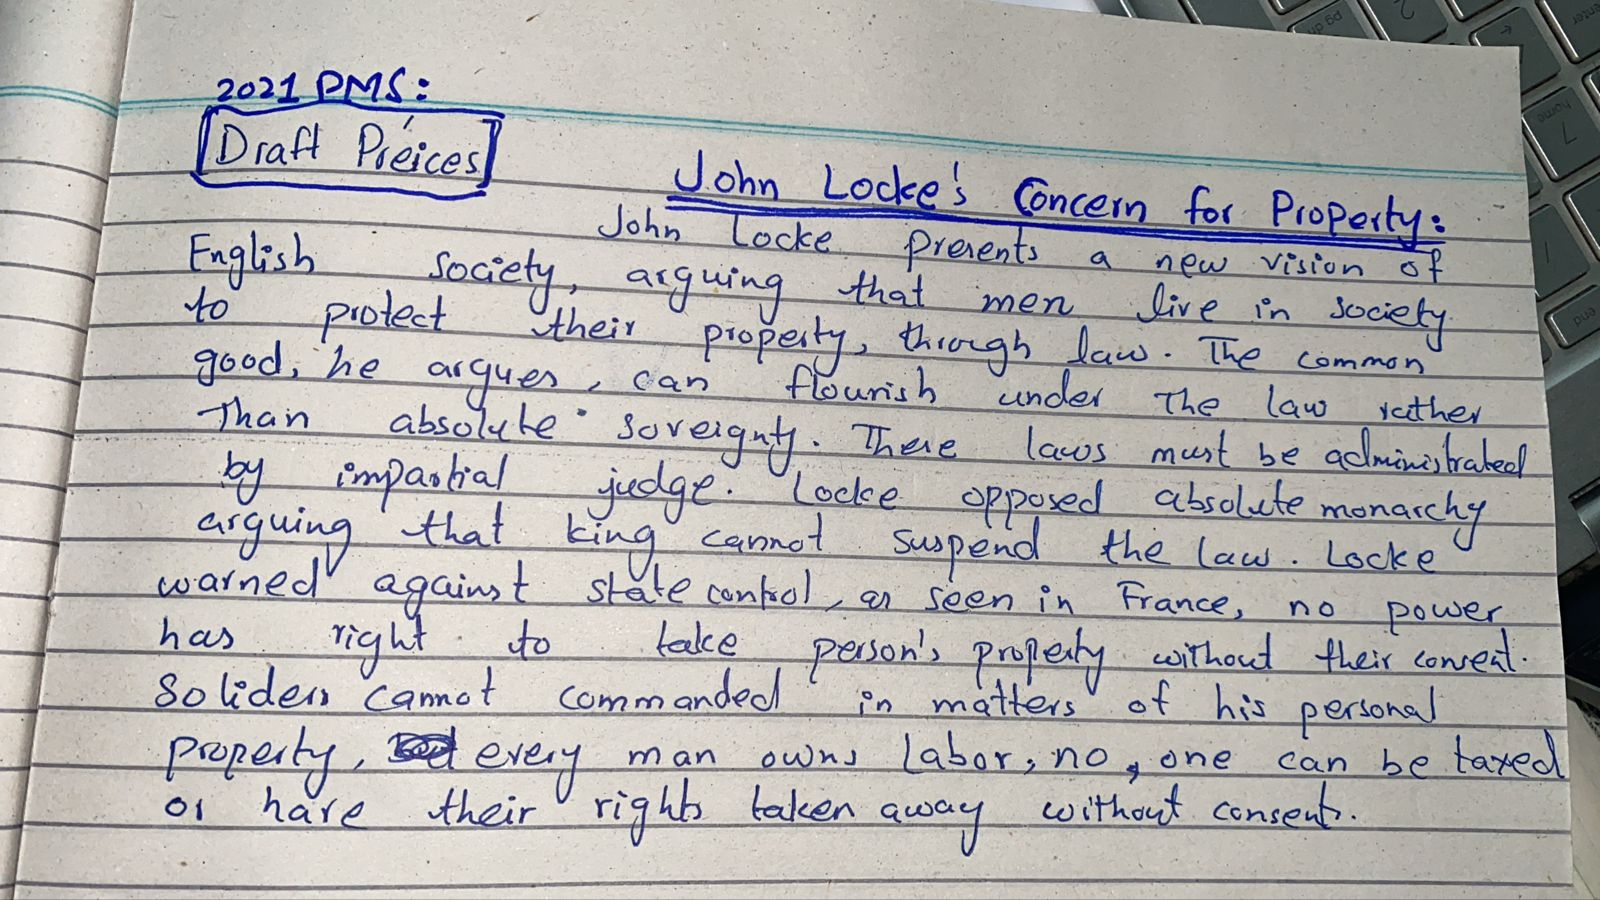 2021 PMS:
Draft Préices
John Locke's Concern for Property:
John Locke presents a new vision of
English society, arguing that men live in society
to protect their property, through law. The common
good, he argues, can flourish under The law rather
Than absolute soveignty. These laws must be administrated
by impartial judge. Locke opposed absolute monarchy
arguing that king cannot suspend the law. Locke
warned against state control, as seen in France, no power
has right to take person's property without their consent.
Soliders cannot commanded in matters of his personal
property, every man owns labor, no, one can be taxed
or have their rights taken away without consent.